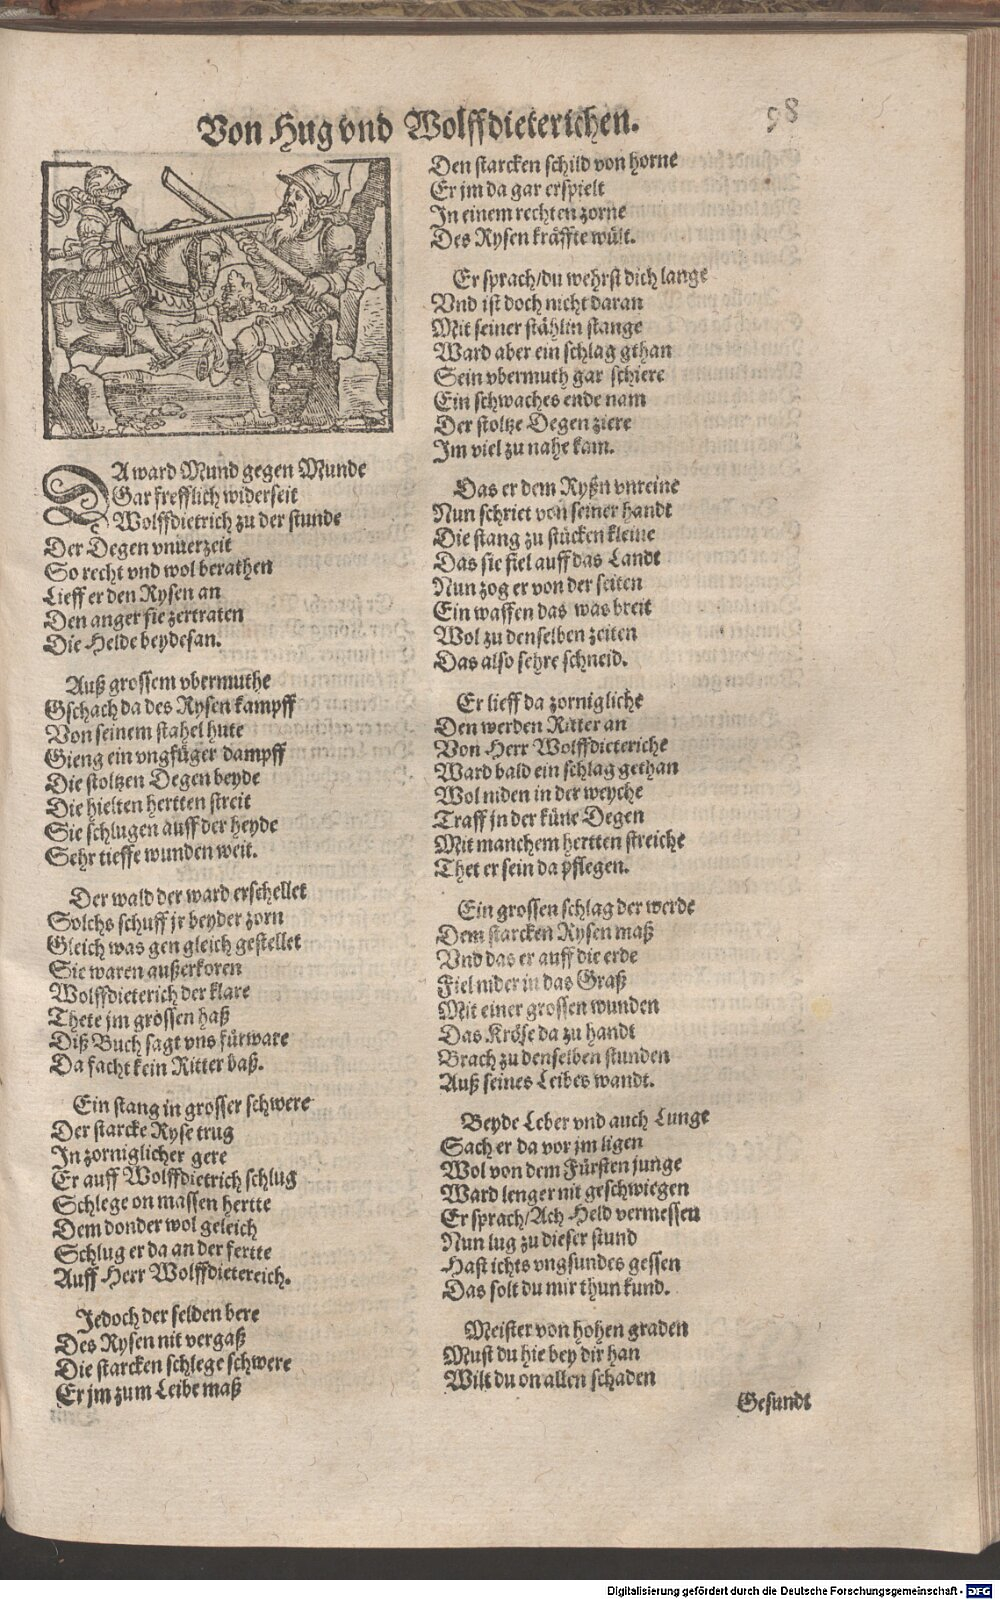 Von Hug vnd Wolffdieterichen.
98
DAward Mund gegen Munde
Gar frefflich widerseit
Wolffdietrich zu der stunde
Der Degen vnuerzeit
So recht vnd wol berathen
Lieff er den Rysen an
Den anger sie zertraten
Die Helde beydesan.
Auß grossem vbermuthe
Gschach da des Rysen kampff
Von seinem stahel hute
Gieng ein vngfüger dampff
Die stoltzen Degen beyde
Die hielten hertten streit
Sie schlugen auff der heyde
Sehr tieffe wunden weit.
Der wald der ward erschellet
Solchs schuff jr beyder zorn
Gleich was gen gleich gestellet
Sie waren außerkoren
Wolffdieterich der klare
Thete jm grossen haß
Diß Buch sagt vns fürware
Da facht kein Ritter baß.
Ein stang in grosser schwere
Der starcke Ryse trug
In zorniglicher gere
Er auff Wolffdietrich schlug
Schlege on massen hertte
Dem donder wol geleich
Schlug er da an der fertte
Auff Herr Wolffdietereich.
Jedoch der selden bere
Des Rysen nit vergaß
Die starcken schlege schwere
Er jm zum Leibe maß
Den starcken schild von horne
Er jm da gar erspielt
In einem rechten zorne
Des Rysen kräffte wült.
Er sprach/du wehrst dich lange
Vnd ist doch nicht daran
Mit seiner stählin stange
Ward aber ein schlag gthan
Sein vbermuth gar schiere
Ein schwaches ende nam
Der stoltze Degen ziere
Im viel zu nahe kam.
Das er dem Ryßn vnreine
Nun schriet von seiner handt
Die stang zu stücken kleine
Das sie fiel auff das Landt
Nun zog er von der seiten
Ein waffen das was breit
Wol zu denselben zeiten
Das also sehre schneid.
Er lieff da zornigliche
Den werden Ritter an
Von Herr Wolffdieteriche
Ward bald ein schlag gethan
Wol niden in der weyche
Traff jn der küne Degen
Mit manchem hertten streiche
Thet er sein da pflegen.
Ein grossen schlag der werde
Dem starcken Rysen maß
Vnd das er auff die erde
Fiel nider in das Graß
Mit einer grossen wunden
Das Kröse da zu handt
Brach zu denselben stunden
Auß seines Leibes wandt.
Beyde Leber vnd auch Lunge
Sach er da vor jm ligen
Wol von dem Fürsten junge
Ward lenger nit geschwiegen
Er sprach/Ach Held vermessen
Nun lug zu dieser stund
Hast ichts vngsundes gessen
Das solt du mir thun kund.
Meister von hohen graden
Must du hie bey dir han
Wilt du on allen schaden
Gesundt
Digitalisierung gefördert durch die Deutsche Forschungsgemeinschaft - DFG